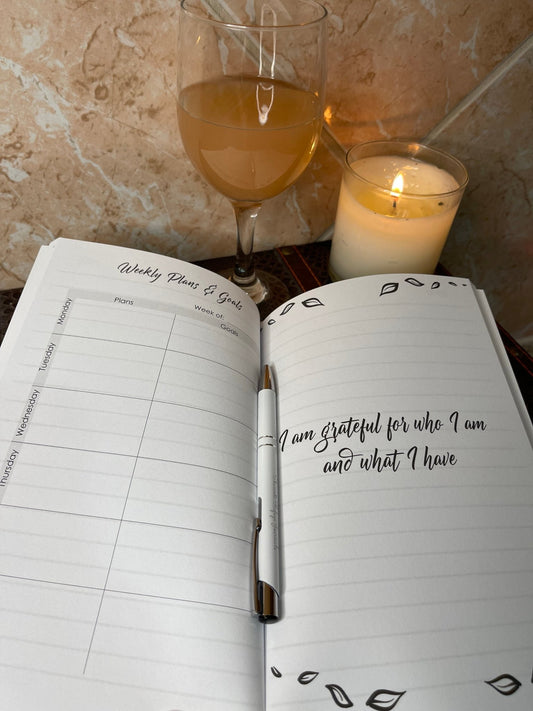 Weekly Plans & Goals
Plans
Week of:
Goals
Monday
Tuesday
Wednesday
Thursday
I am grateful for who I am
and what I have